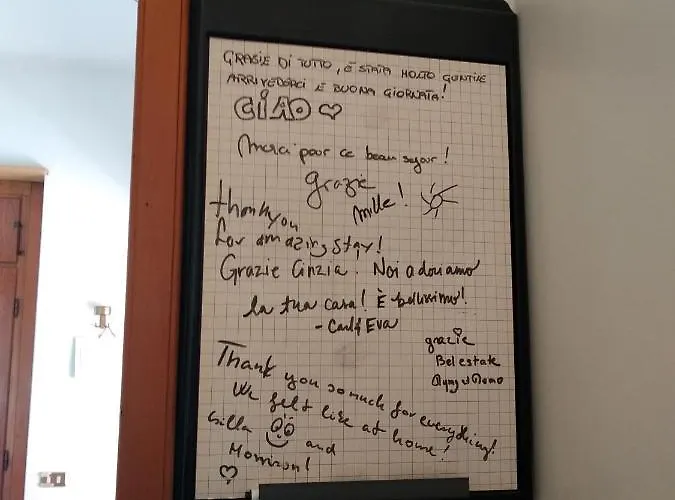 GRASIE DI TUTTO, È STATA MOLTO GENTILE
ARRIVEDERCI E BUONA GIORNATA!
CIAO ♡
Merci pour ce beau sejour!
grazie
mille!
thank you
for amazing stay!
Grazie Cinzia! Noi adoriamo
la tua casa! È bellissimo!
- Carl & Eva
grazie
Bel estate
Thank you so much for everything!
We felt like at home!
and
Morrison!
♡